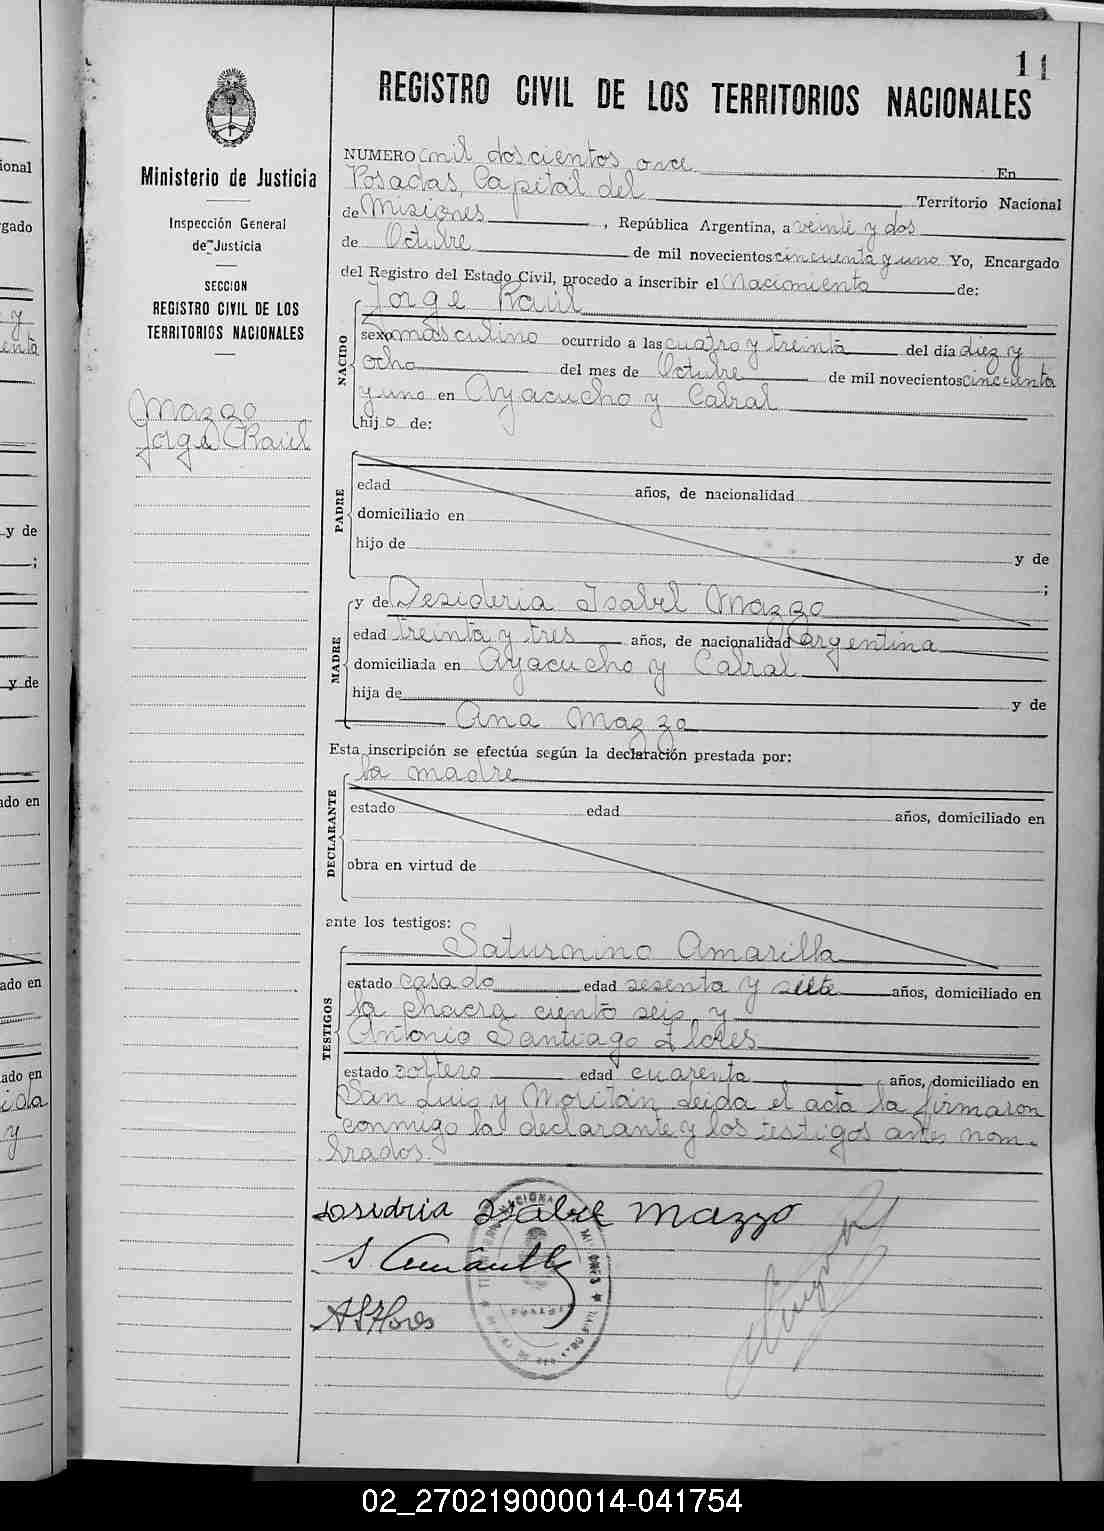 11
REGISTRO CIVIL DE LOS TERRITORIOS NACIONALES
Ministerio de Justicia
Inspección General
de Justicia
SECCION
REGISTRO CIVIL DE LOS
TERRITORIOS NACIONALES
Mazzo
Jorge Raúl
NUMERO mil doscientos once En
Posadas, Capital del Territorio Nacional
de Misiones, República Argentina, a veinte y dos
de Octubre de mil novecientos cincuenta y uno Yo, Encargado
del Registro del Estado Civil, procedo a inscribir el Nacimiento de:
Jorge Raúl
NACIDO
sexo masculino ocurrido a las cuatro y treinta del día diez y
ocho del mes de Octubre de mil novecientos cincuenta
y uno en Ayacucho y Cabral
hijo de:
PADRE
edad años, de nacionalidad
domiciliado en
hijo de y de
;
MADRE
y de Desideria Isabel Mazzo
edad treinta y tres años, de nacionalidad Argentina
domiciliada en Ayacucho y Cabral
hija de y de
Ana Mazzo
Esta inscripción se efectúa según la declaración prestada por:
la madre
DECLARANTE
estado edad años, domiciliado en
obra en virtud de
ante los testigos:
Saturnino Amarilla
TESTIGOS
estado casado edad sesenta y siete años, domiciliado en
la chacra ciento seis y
Antonio Santiago Flores
estado soltero edad cuarenta años, domiciliado en
San Luis y Moritán Leida el acta la firmaron
conmigo la declarante y los testigos antes nom-
brados.
Desidria Isabel Mazzo
S Amarilla
A S Flores
ional
gado
y
enta
y de
;
y de
ado en
ado en
ado en
ida
y
02_270219000014-041754